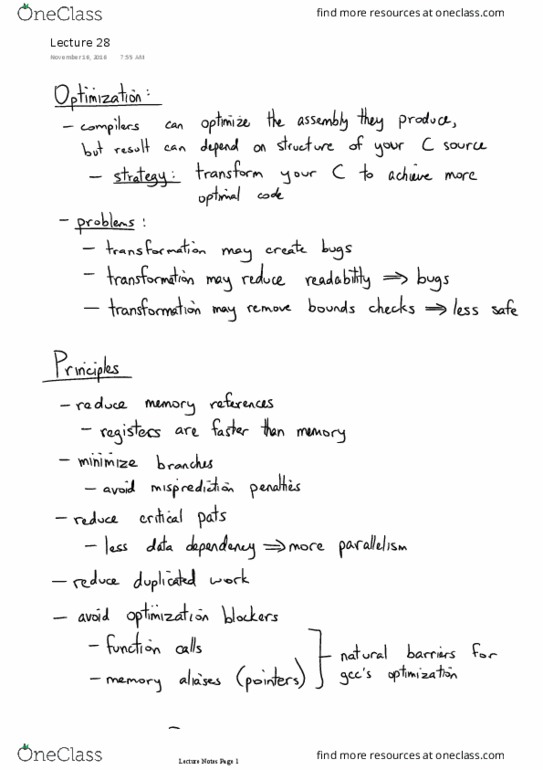 OneClass
find more resources at oneclass.com
Lecture 28
November 16, 2016 7:55 AM
Optimization:
- compilers can optimize the assembly they produce,
but result can depend on structure of your C source
- strategy: transform your C to achieve more
optimal code
- problems:
- transformation may create bugs
- transformation may reduce readability ⇒ bugs
- transformation may remove bounds checks ⇒ less safe
Principles
- reduce memory references
- registers are faster than memory
- minimize branches
- avoid misprediction penalties
- reduce critical pats
- less data dependency ⇒ more parallelism
- reduce duplicated work
- avoid optimization blockers
- function calls
- memory aliases (pointers)
natural barriers for
gcc's optimization
-
Lecture Notes Page 1
OneClass
find more resources at oneclass.com